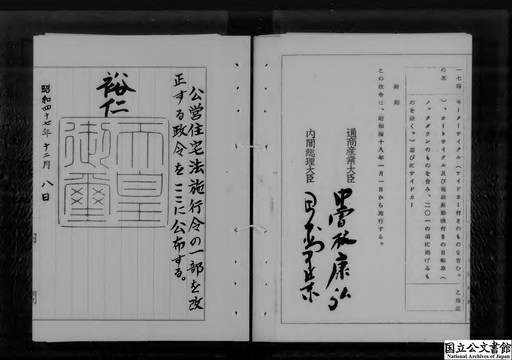 一七四 モーターサイクル（サイドカー付きのものを含む。
の五 ）、オートサイクル及び補助原動機付きの自転車（
ノックダウンのものを含み、二〇一の項に掲げるも
のを除く。）並びにサイドカー
附則
この政令は、昭和四十八年一月一日から施行する。
通商産業大臣 中曽根康弘
内閣総理大臣 田中角栄
公営住宅法施行令の一部を改
正する政令をここに公布する。
裕仁
天皇御璽
昭和四十七年十二月八日
国立公文書館
National Archives of Japan